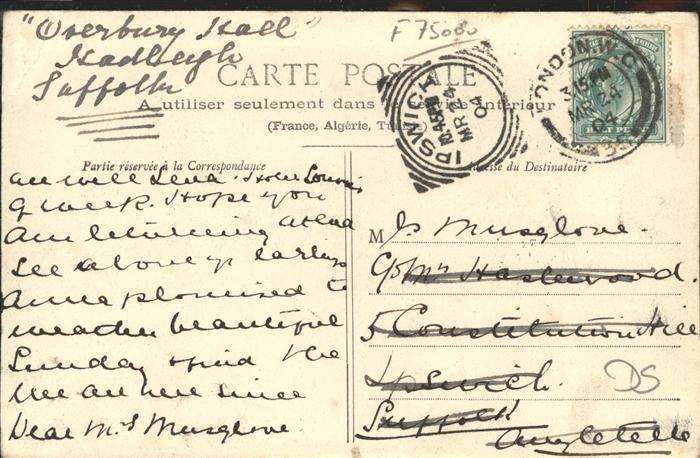 "Overbury Hall"
Hadleigh
Suffolk
F 75000
CARTE POSTALE
A utiliser seulement dans le Service Intérieur
(France, Algérie, Tunisie)
IPSWICH
MR 24
04
LONDON. W.C
MR 24
04
Partie réservée à la Correspondance
Adresse du Destinataire
all well Send
of week. Hope you
am returning at end
see above
Anna promised to
weather beautiful
Sunday & find the
We are here since
Dear Mrs Musglove
M Js Musglove.
c/o Mrs Haslewood
5 Constitution Hill
Ipswich.
Suffolk
Angleterre
DS